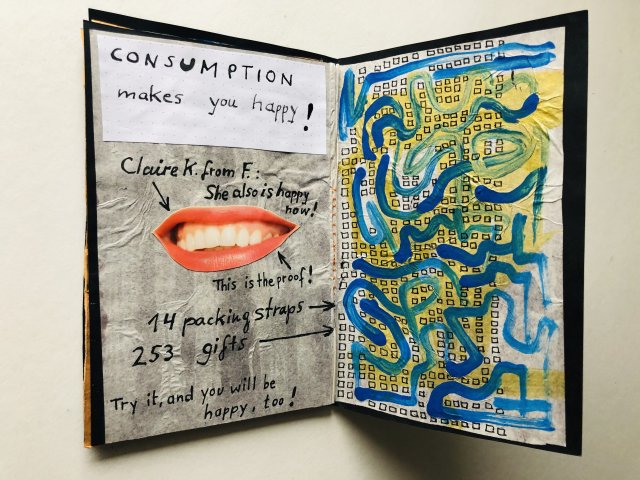 CONSUMPTION
makes you happy!
Claire K. from F.:
She also is happy
now!
This is the proof!
14 packing straps
253 gifts
Try it, and you will be
happy, too!